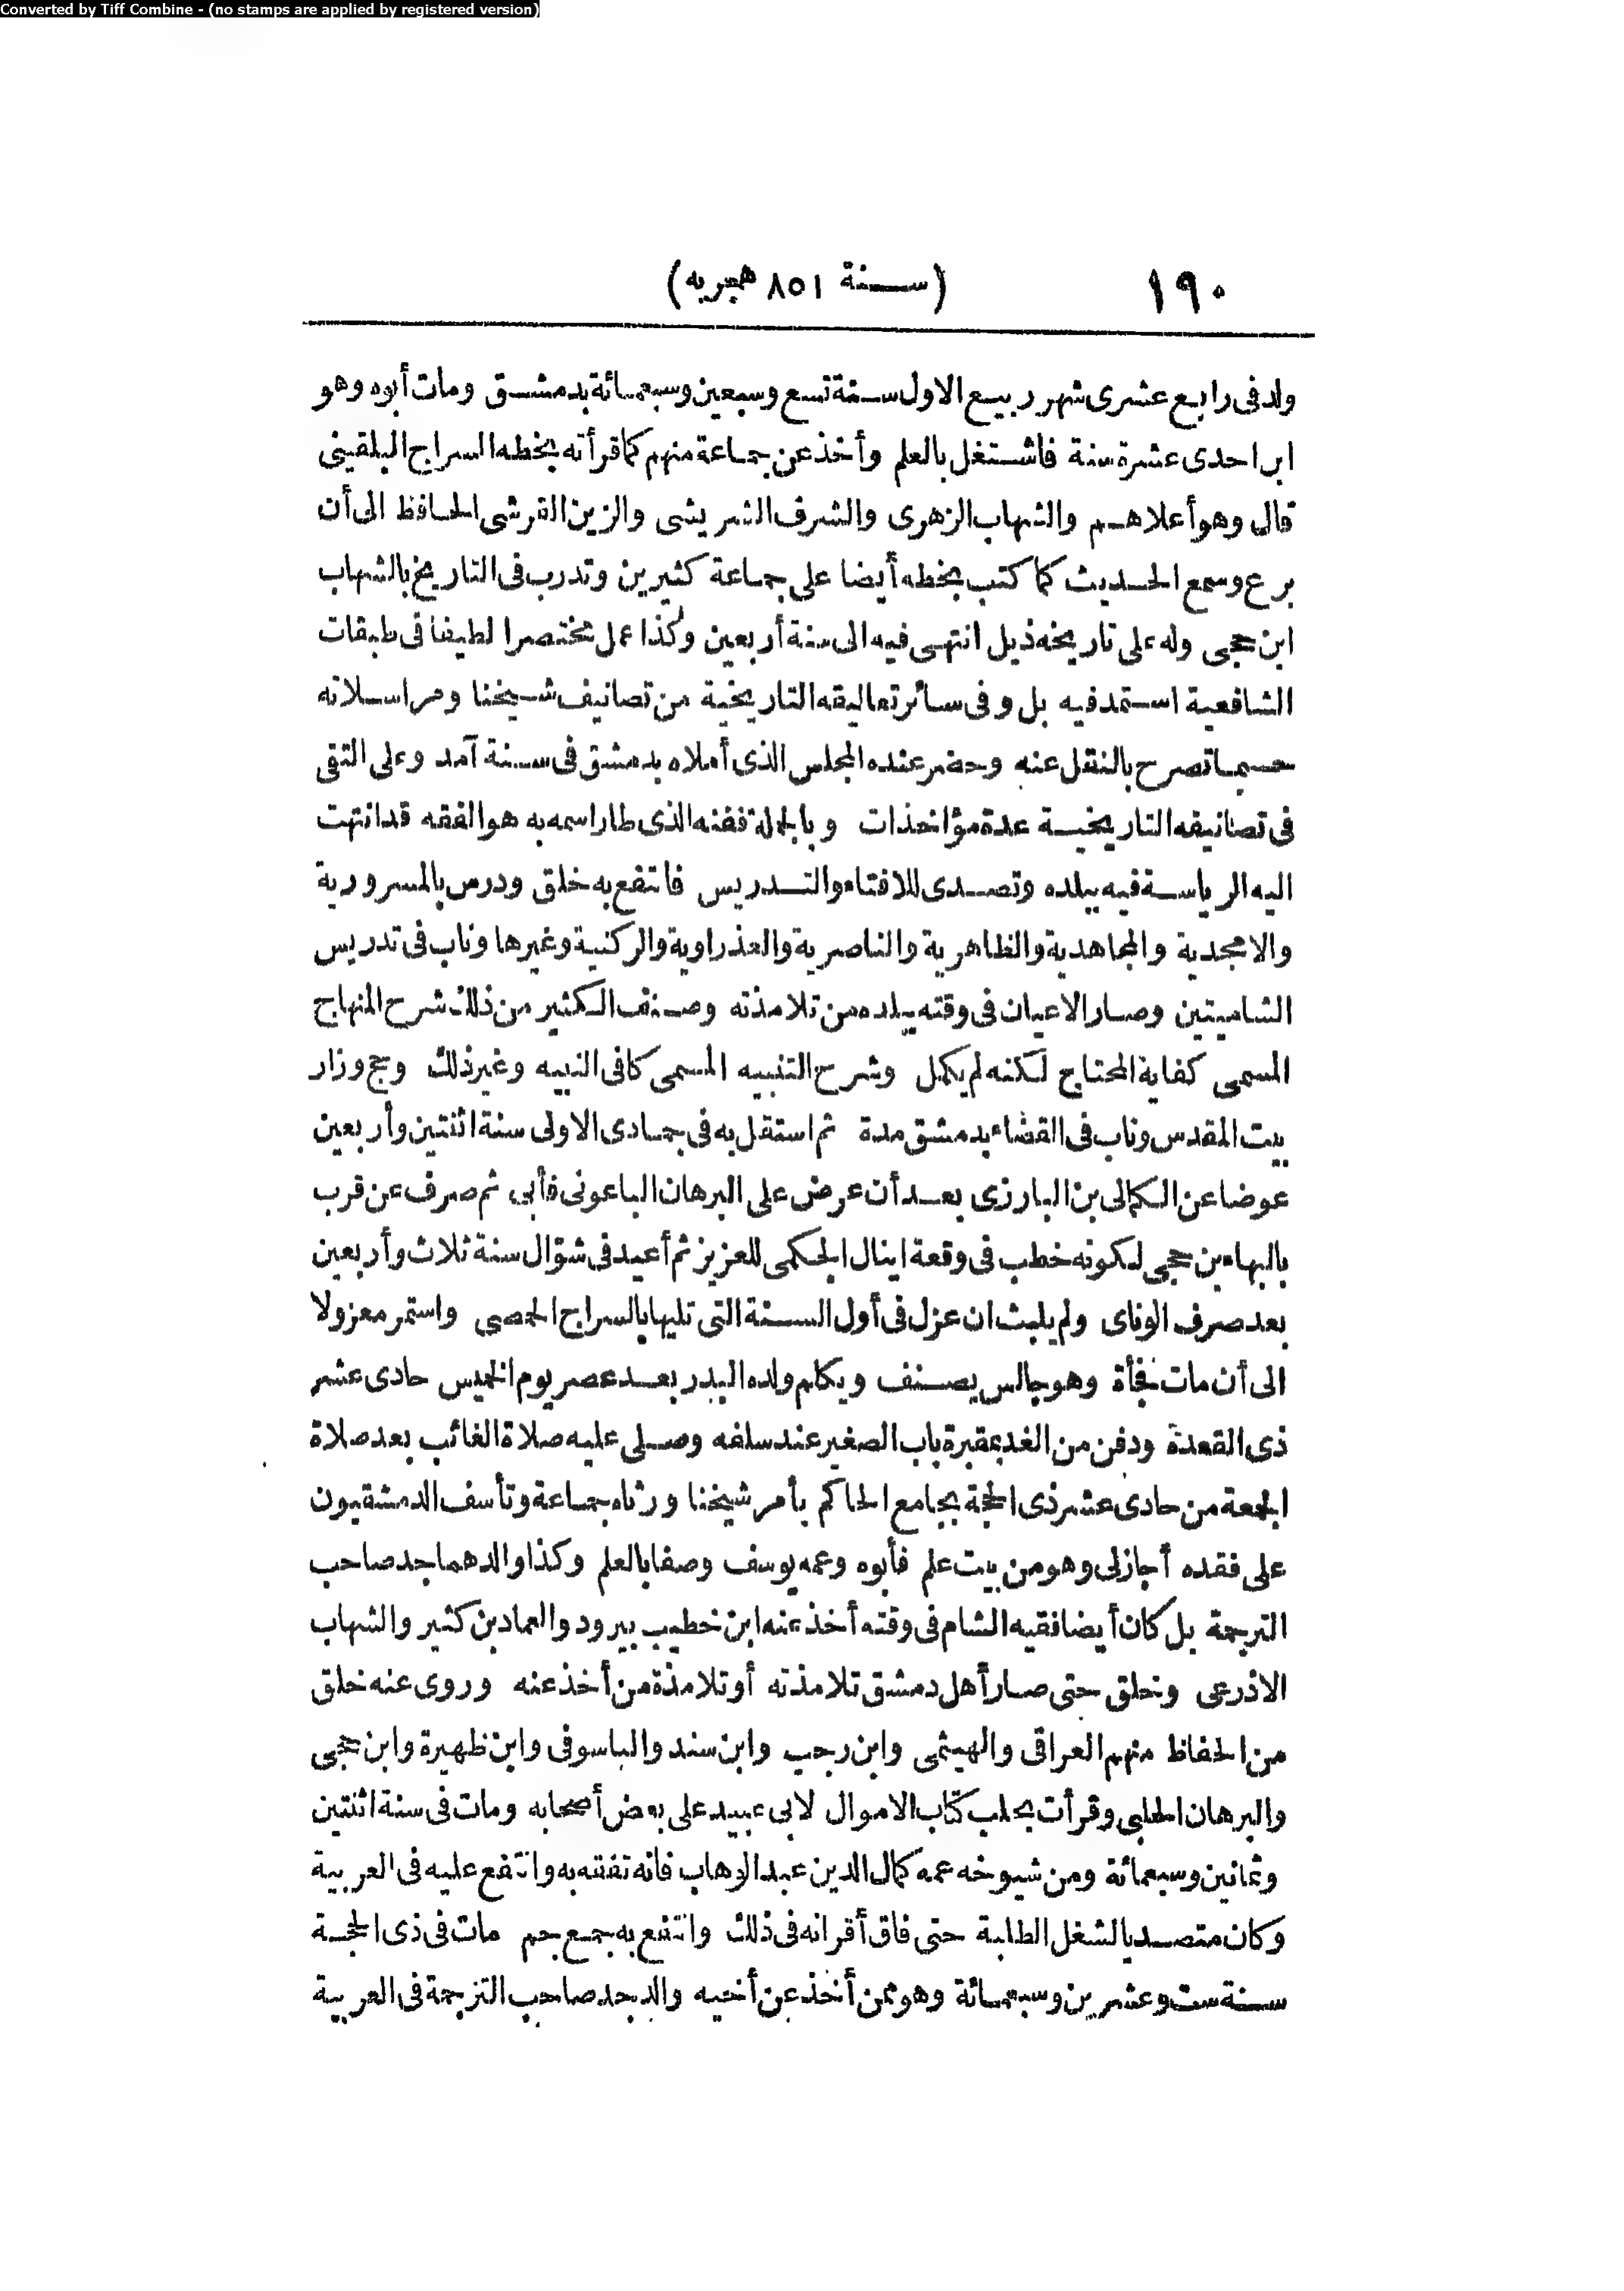 Converted by Tiff Combine - (no stamps are applied by registered version)
١٩٠ (سنة ٨٥١ هجريه)
ولد فى رابع عشرى شهر ربيع الاول سنة تسع وسبعين وسبعمائة بدمشق ومات أبوه وهو
ابن احدى عشرة سنة فاشتغل بالعلم وأخذ عن جماعة منهم كما قرأته بخطه السراج البلقينى
قال وهو أعلاهم والشهاب الزهرى والشرف الشريشى والزين القرشى الحافظ الى أن
برع وسمع الحديث كما كتب بخطه أيضا على جماعة كثيرين وتدرب فى التاريخ بالشهاب
ابن حجى وله على تاريخه ذيل انتهى فيه الى سنة أربعين وكذا عمل مختصرا لطيفا فى طبقات
الشافعية استمد فيه بل وفى سائر تعاليقه التاريخية من تصانيف شيخنا ومراسلاته
حسبما تصرح بالنقل عنه وحضر عنده المجلس الذى أملاه بدمشق فى سنة آمد وعلى التقى
فى تصانيفه التاريخية عدة مؤاخذات وبالجملة ففنه الذى طار اسمه به هو الفقه قد انتهت
اليه الرياسة فيه ببلده وتصدى للافتاء والتدريس فانتفع به خلق ودرس بالمسرورية
والامجدية والمجاهدية والظاهرية والناصرية والعذراوية والركنية وغيرها وناب فى تدريس
الشاميتين وصار الاعيان فى وقته ببلده من تلامذته وصنف الكثير من ذلك شرح المنهاج
المسمى كفاية المحتاج لكنه لم يكمل وشرح التنبيه المسمى كافى النبيه وغير ذلك وحج وزار
بيت المقدس وناب فى القضاء بدمشق مدة ثم استقل به فى جمادى الاولى سنة اثنتين وأربعين
عوضا عن الكمالى بن البارزى بعد أن عرض على البرهان الباعونى فأبى ثم صرف عن قرب
بالبهاء بن حجى لكونه خطب فى وقعة اينال الجكمى للعزيز ثم أعيد فى شوّال سنة ثلاث وأربعين
بعد صرف الوناى ولم يلبث ان عزل فى أول السنة التى تليها بالسراج الحمصى واستمر معزولا
الى أن مات فجأة وهو جالس يصنف ويكلم ولده البدر بعد عصر يوم الخميس حادى عشر
ذى القعدة ودفن من الغد بمقبرة باب الصغير عند سلفه وصلى عليه صلاة الغائب بعد صلاة
الجمعة من حادى عشر ذى الحجة بجامع الحاكم بأمر شيخنا ورثاه جماعة وتأسف الدمشقيون
على فقده أجاز لى وهو من بيت علم فأبوه وعمه يوسف وصفا بالعلم وكذا والدهما جد صاحب
الترجمة بل كان أيضا فقيه الشام فى وقته أخذ عنه ابن خطيب يبرود والعماد بن كثير والشهاب
الاذرعى وخلق حتى صار أهل دمشق تلامذته أو تلامذة من أخذ عنه وروى عنه خلق
من الحفاظ منهم العراقى والهيثمى وابن رجب وابن سند والياسوفى وابن ظهيرة وابن حجى
والبرهان الحلبى وقرأت بحلب كتاب الاموال لابى عبيد على بعض أصحابه ومات فى سنة اثنتين
وثمانين وسبعمائة ومن شيوخه عمه كمال الدين عبد الوهاب فانه تفقه به وانتفع عليه فى العربية
وكان متصديا لشغل الطلبة حتى فاق أقرانه فى ذلك وانتفع به جمع جم مات فى ذى الحجة
سنة ست وعشرين وسبعمائة وهو ممن أخذ عن أخيه والد جد صاحب الترجمة فى العربية